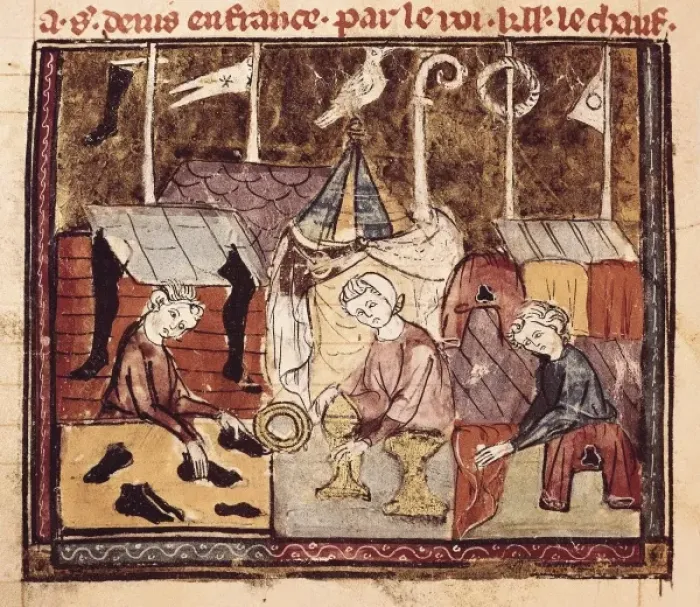 a· s'· denis enfrance· par le roi· kll'· le chauf·